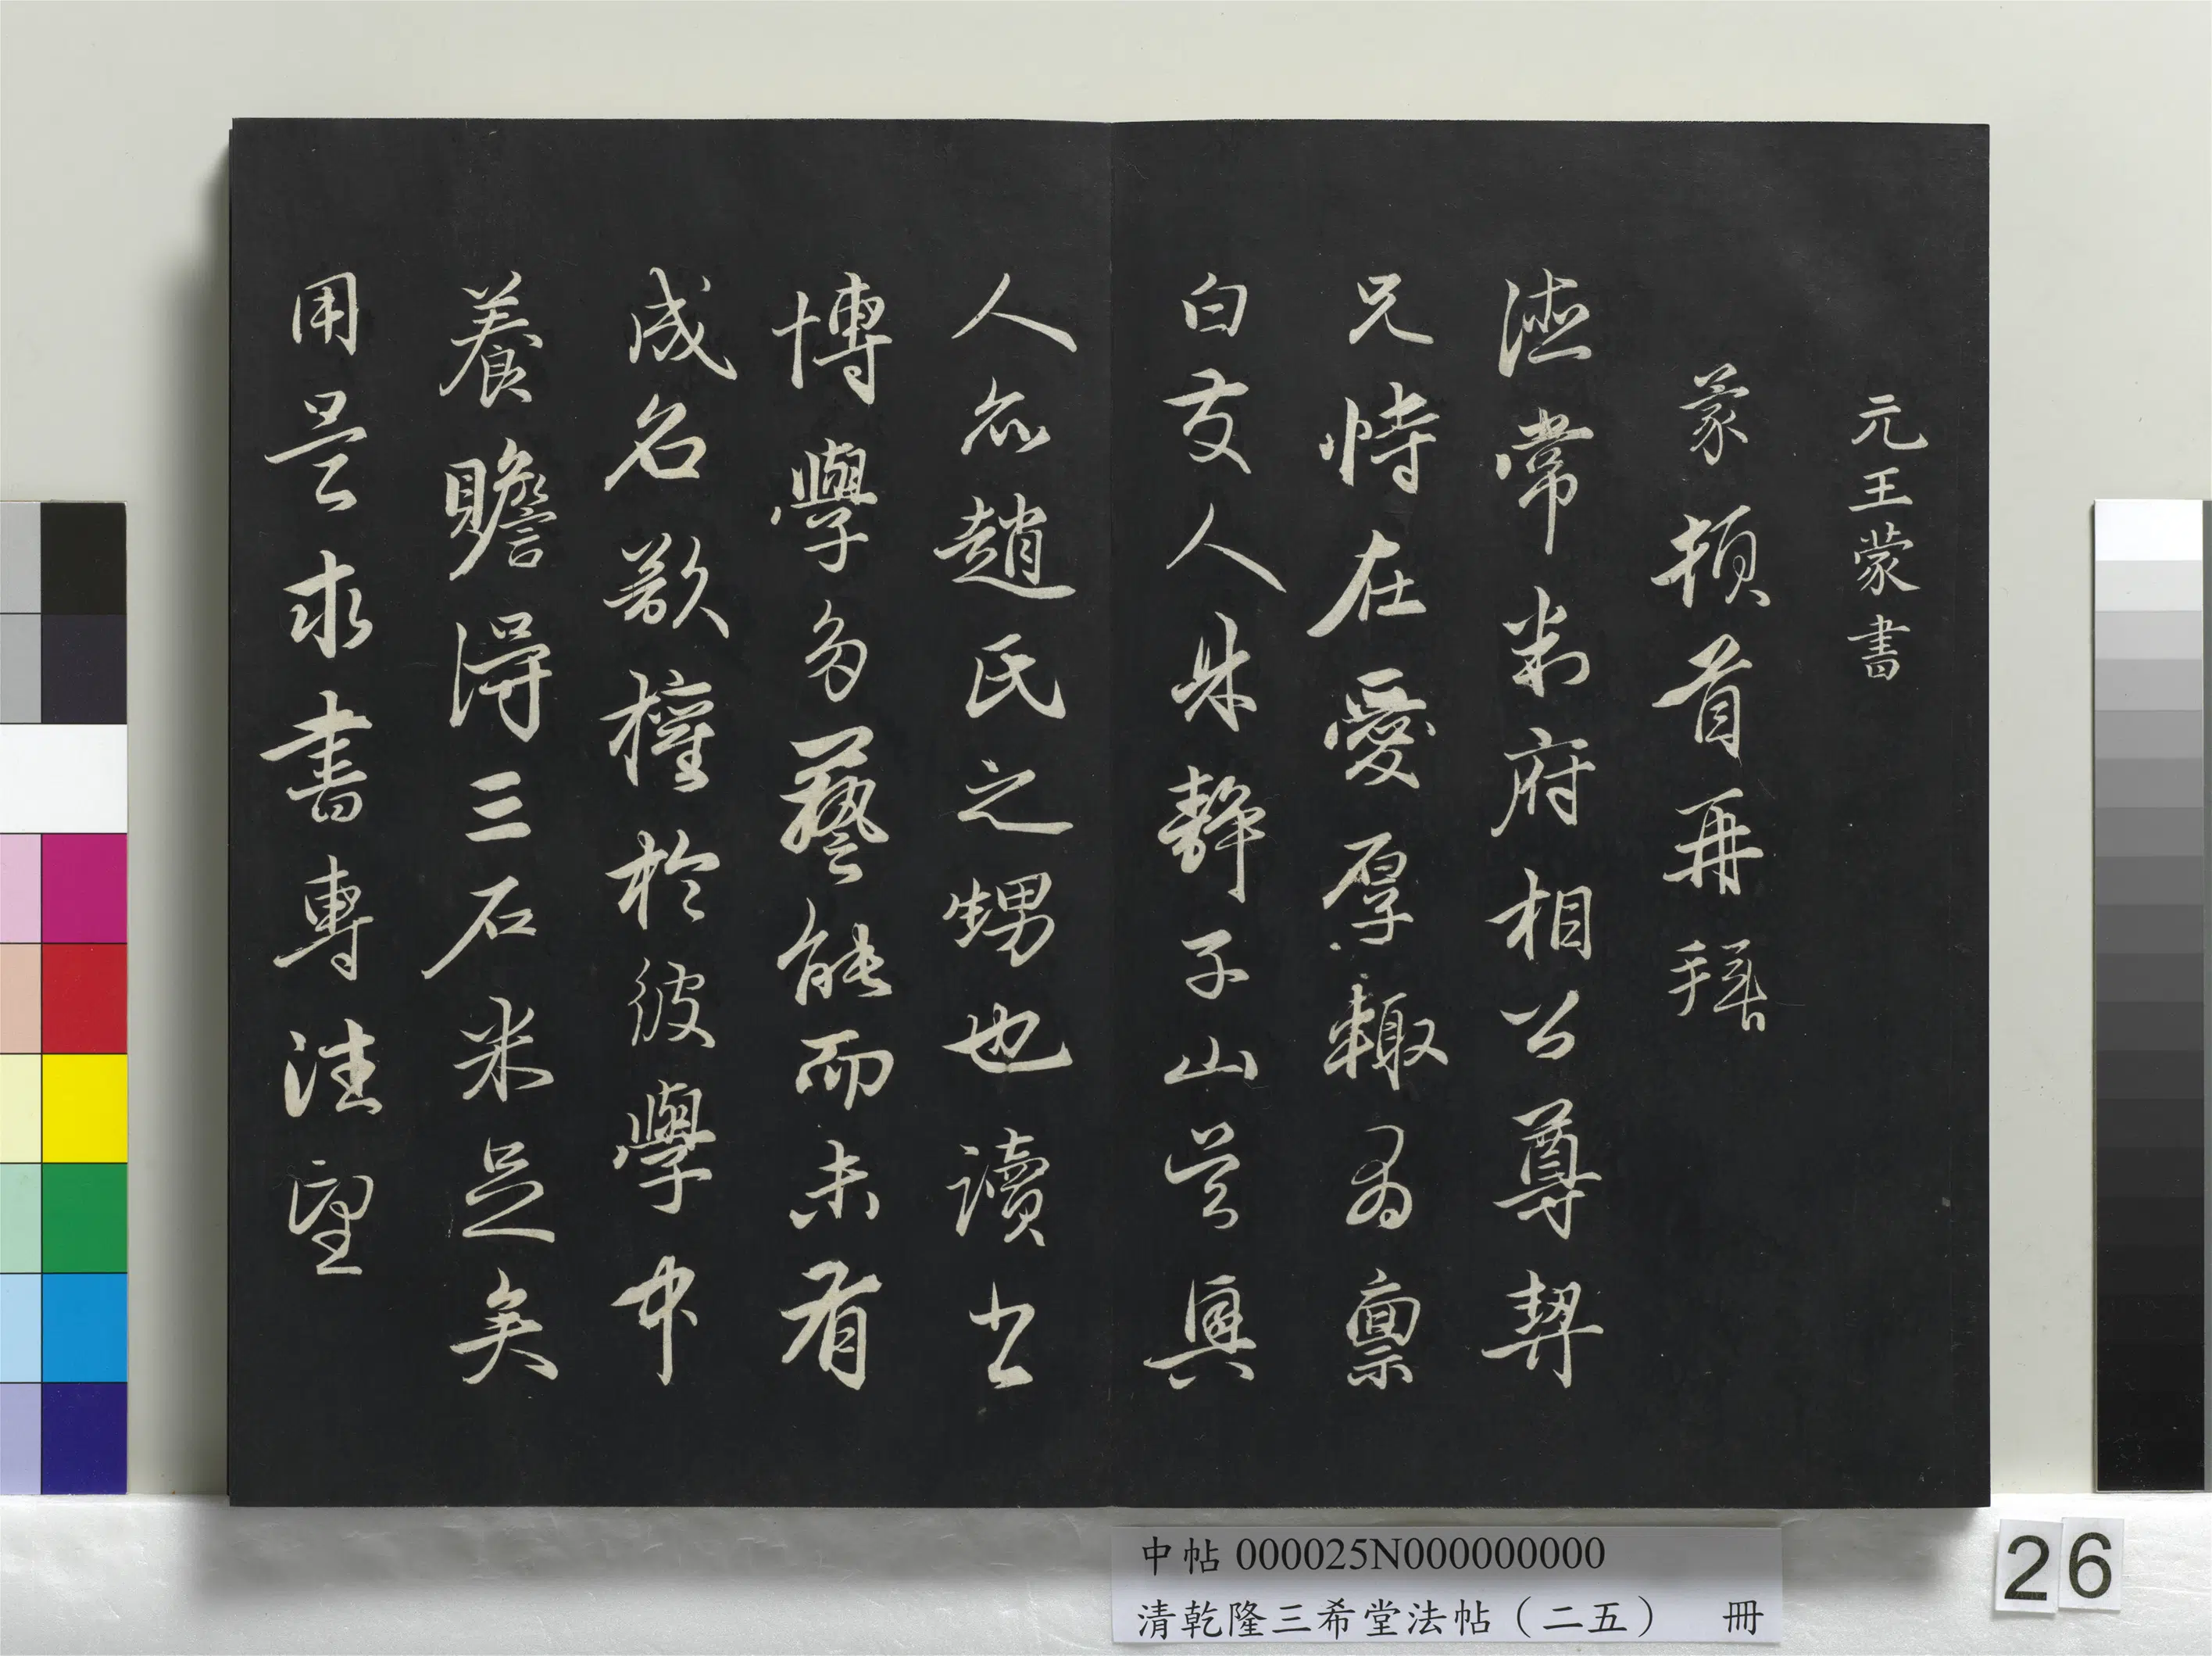 元王蒙書
蒙頓首再拜
德常判府相公尊契
兄恃在愛厚輒為禀
白友人朱靜子山吳興
人亦趙氏之甥也讀書
博學多藝能而未有
成名欲權於彼學中
養贍得三石米足矣
用是求書專注望
中帖 000025N000000000
清乾隆三希堂法帖（二五） 冊
26